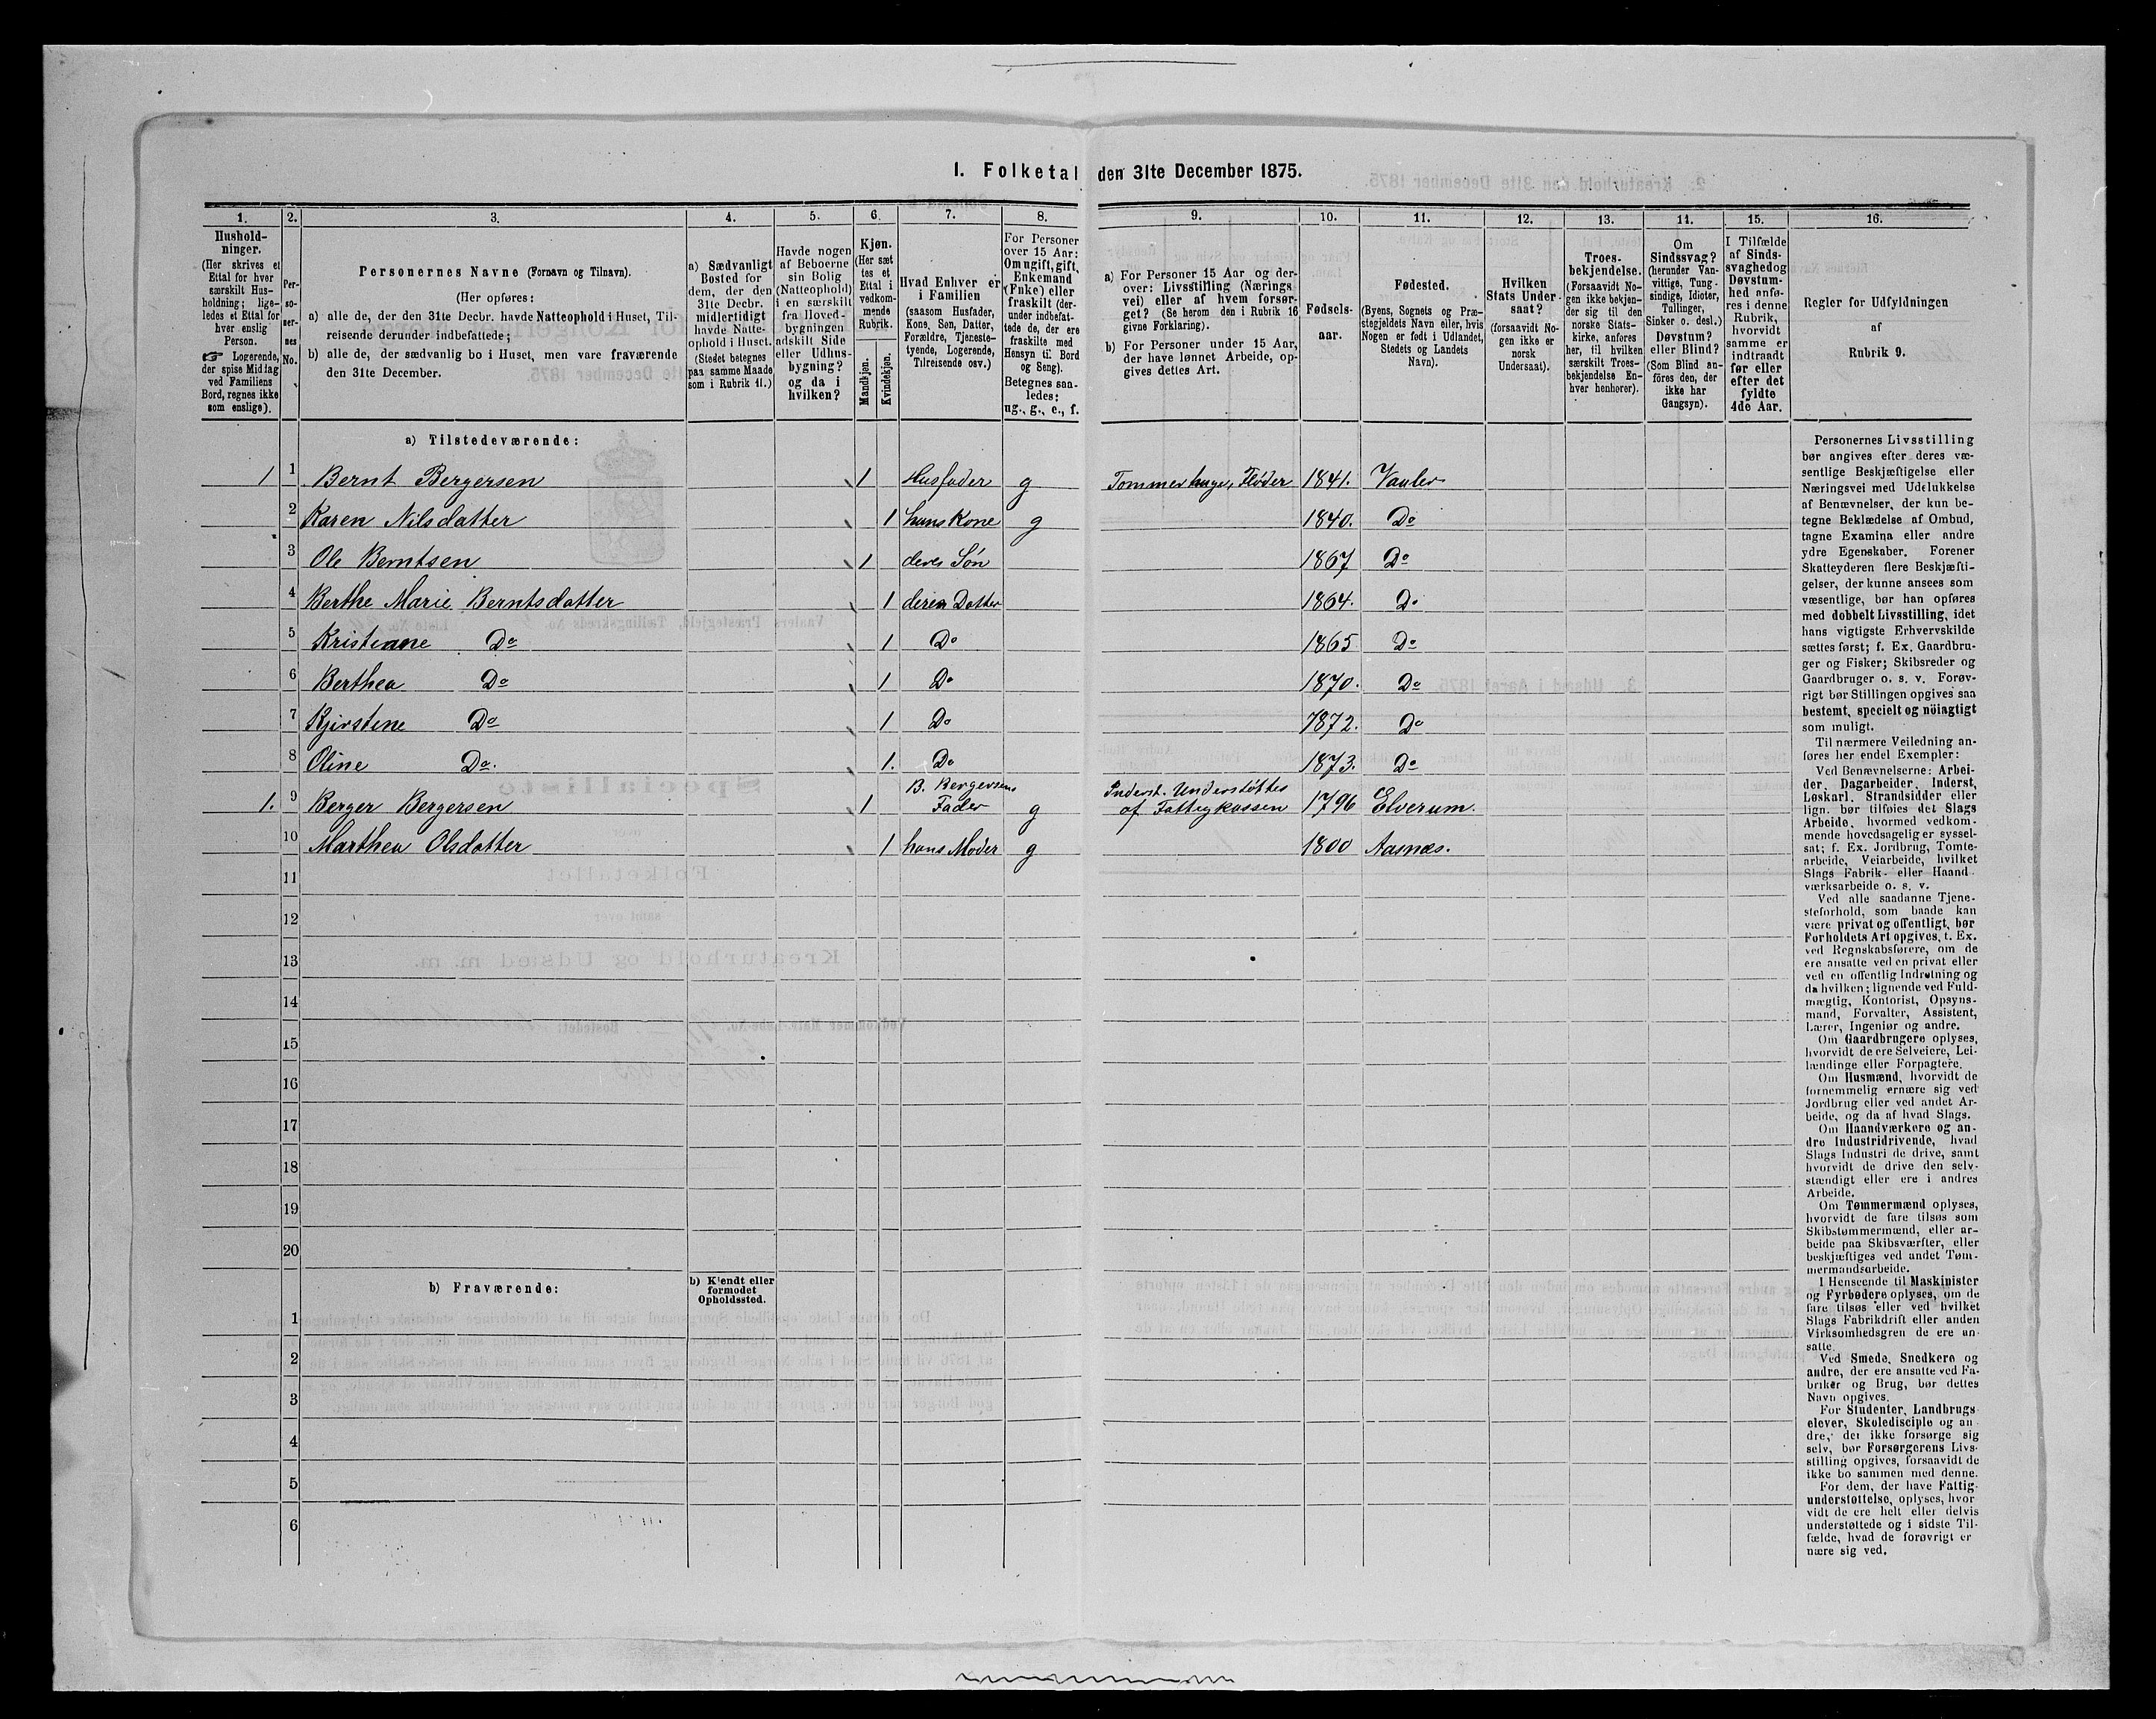 I. Folketal den 31te December 1875.
1.
Hushold-
ninger.
(Her skrives et
Ettal for hver
særskilt Hus-
holdning; lige-
ledes et Ettal for
hver enslig
Person.
☞ Logerende,
der spise Middag
ved Familiens
Bord, regnes ikke
som enslige).
2.
Per-
so-
ner-
nes
No.
3.
Personernes Navne (Fornavn og Tilnavn).
(Her opføres:
a) alle de, der den 31te Decbr. havde Natteophold i Huset, Til-
reisende derunder indbefattede;
b) alle de, der sædvanlig bo i Huset, men vare fraværende
den 31te December.
4.
a) Sædvanligt
Bosted for
dem, der den
31te Decbr.
midlertidigt
havde Natte-
ophold i Huset.
(Stedet betegnes
paa samme Maade
som i Rubrik 11.)
5.
Havde nogen
af Beboerne
sin Bolig
(Natteophold)
i en særskilt
fra Hoved-
bygningen
adskilt Side
eller Udhus-
bygning?
og da i
hvilken?
6.
Kjøn.
(Her sæt
tes et
Ettal i
vedkom-
mende
Rubrik.
Mandkjøn.
Kvindekjøn.
7.
Hvad Enhver er
i Familien
(saasom Husfader,
Kone, Søn, Datter,
Forældre, Tjeneste-
tyende, Logerende,
Tilreisende osv.)
8.
For Personer
over 15 Aar:
Om ugift, gift,
Enkemand
(Enke) eller
fraskilt (der-
under indbefat-
tede de, der ere
fraskilte med
Hensyn til Bord
og Seng).
Betegnes saa-
ledes:
ug., g., e., f.
9.
a) For Personer 15 Aar og der-
over: Livsstilling (Nærings
vei) eller af hvem forsør-
get? (Se herom den i Rubrik 16
givne Forklaring).
b) For Personer under 15 Aar,
der have lønnet Arbeide, op-
gives dettes Art.
10.
Fødsels-
aar.
11.
Fødested.
(Byens, Sognets og Præ-
stegjeldets Navn eller, hvis
Nogen er født i Udlandet,
Stedets og Landets
Navn).
12.
Hvilken
Stats Under-
saat?
(forsaavidt No-
gen ikke er
norsk
Undersaat).
13.
Troes-
bekjendelse.
(Forsaavidt No-
gen ikke bekjen-
der sig til den
norske Stats-
kirke, anføres
her, til hvilken
særskilt Troes-
bekjendelse En-
hver henhorer).
14.
Om
Sindssvag?
(herunder Van-
vittige, Tung-
sindige, Idioter,
Tullinger,
Sinker o. desl.)
Døvstum?
eller Blind?
(Som Blind an-
föres den, der
ikke har
Gangsyn).
15.
I Tilfælde
af Sinds-
svaghed og
Døvstum-
hed anfø-
res i denne
Rubrik,
hvorvidt
samme er
indtraadt
før eller
efter det
fyldte
4de Aar.
16.
Regler for Udfyldningen
af
Rubrik 9.
a) Tilstedeværende:
1 1 Bernt Bergersen 1 Husfader g Tommerhuger, Fløder 1841. Vaaler
2 Karen Nilsdatter 1 hans Kone g 1840. Do
3 Ole Berntsen 1 deres Søn 1867 Do
4 Berthe Marie Berntsdatter 1 deres Datter 1864. Do
5 Kristiane Do 1 Do 1865 Do
6 Berthea Do 1 Do 1870. Do
7 Kjirstene Do 1 Do 1872. Do
8 Oline Do. 1. Do 1873. Do
1. 9 Berger Bergersen 1 B. Bergersens
Fader g Inderst. Understøttes
af Fattigkassen 1796 Elverum.
10 Marthea Olsdatter 1 hans Moder g 1800 Aasnæs.
11
12
13
14
15
16
17
18
19
20
b) Fraværende:
b) Kjendt eller
formodet
Opholdssted.
1
2
3
4
5
6
Personernes Livsstilling
bør angives efter deres væ-
sentlige Beskjæftigelse eller
Næringsvei med Udelukkelse
af Benævnelser, der kun be-
tegne Beklædelse af Ombud,
tagne Examina eller andre
ydre Egenskaber. Forener
Skatteyderen flere Beskjæfti-
gelser, der kunne ansees som
væsentlige, bør han opføres
med dobbelt Livsstilling, idet
hans vigtigste Erhvervskilde
sættes først; f. Ex. Gaardbru-
ger og Fisker; Skibsreder og
Gaardbruger o. s. v. Forøv-
rigt bør Stillingen opgives saa
bestemt, specielt og nöiagtigt
som muligt.
Til nærmere Veiledning an-
føres her endel Exempler:
Ved Benævnelserne: Arbei-
der, Dagarbeider, Inderst,
Løskarl, Strandsidder eller
lign. bør tilføies det Slags
Arbeide, hvormed vedkom-
mende hovedsagelig er syssel-
sat; f. Ex. Jordbrug, Tomte-
arbeide, Veiarbeide, hvilket
Slags Fabrik- eller Haand-
værksarbeide o. s. v.
Ved alle saadanne Tjene-
steforhold, som baade kan
være privat og offentligt, bør
Forholdets Art opgives, t. Ex.
ved Regnskabsførere, om de
ere ansatte ved en privat eller
ved en offentlig Indretning og
da hvilken; lignende ved Fuld-
mægtig, Kontorist, Opsyns-
mand, Forvalter, Assistent,
Lærer, Ingeniør og andre.
Om Gaardbrugere oplyses,
hvorvidt de ere Selveiere, Lei-
lændinge eller Forpagtere.
Om Husmænd, hvorvidt de
fornemmelig ernære sig ved
Jordbrug eller ved andet Ar-
beide, og da af hvad Slags.
Om Haandværkere og an-
dre Industridrivende, hvad
Slags Industri de drive, samt
hvorvidt de drive den selv-
stændigt eller ere i andres
Arbeide.
Om Tømmermænd oplyses,
hvorvidt de fare tilsøs som
Skibstømmermænd, eller ar-
beide paa Skibsværfter, eller
beskjæftiges ved andet Tøm-
mermandsarbeide.
I Henseende til Maskinister
og Fyrbødere oplyses, om de
fare tilsøs eller ved hvilket
Slags Fabrikdrift eller anden
Virksomhedsgren de ere an-
satte.
Ved Smede, Snedkere og
andre, der ere ansatte ved Fa-
briker og Brug, bør dettes
Navn opgives.
For Studenter, Landbrugs-
elever, Skoledisciple og an-
dre, der ikke forsørge sig
selv, bør Forsørgerens Livs-
stilling opgives, forsaavidt de
ikke bo sammen med denne.
For dem, der have Fattig-
understøttelse, oplyses, hvor-
vidt de ere helt eller delvis
understøttede og i sidste Til-
fælde, hvad de forøvrigt er-
nære sig ved.